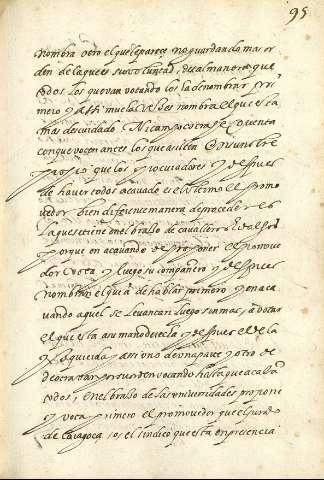 95
nombra otro el que le parece no guardando mas or
den de la que es su voluntad, de tal manera que
todos los que van votando los ha de nombrar pri
mero y assi muchas vezes nombra el que esta
mas descuidado Ni tampoco se
con que voten antes los que asisten
los procuradores y despues
de haver todos acavado es el ultimo el promo
vedor bien diferente manera de proceder es
la que se tiene en el brasso de cavalleros
porque en acavando de proponer el promove
dor vota y luego su compañero y despues
nombran el que a de hablar primero y en aca
vando aquel se levantan luego a votar
el que esta a su mano derecha y despues el de la
yzquierda y assi uno de una parte y otro de
de otra van votando hasta que acaban
todos, En el brasso de las universidades propone
y vota primero el promovedor que es Jurado
de Caragoça o el sindico que esta en presencia